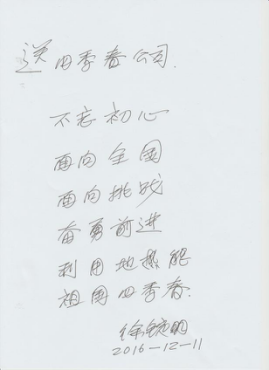 送四季春公司.
不忘初心
面向全国
面向挑战
奋勇前进
利用地热能
祖国四季春.
2016-12-11